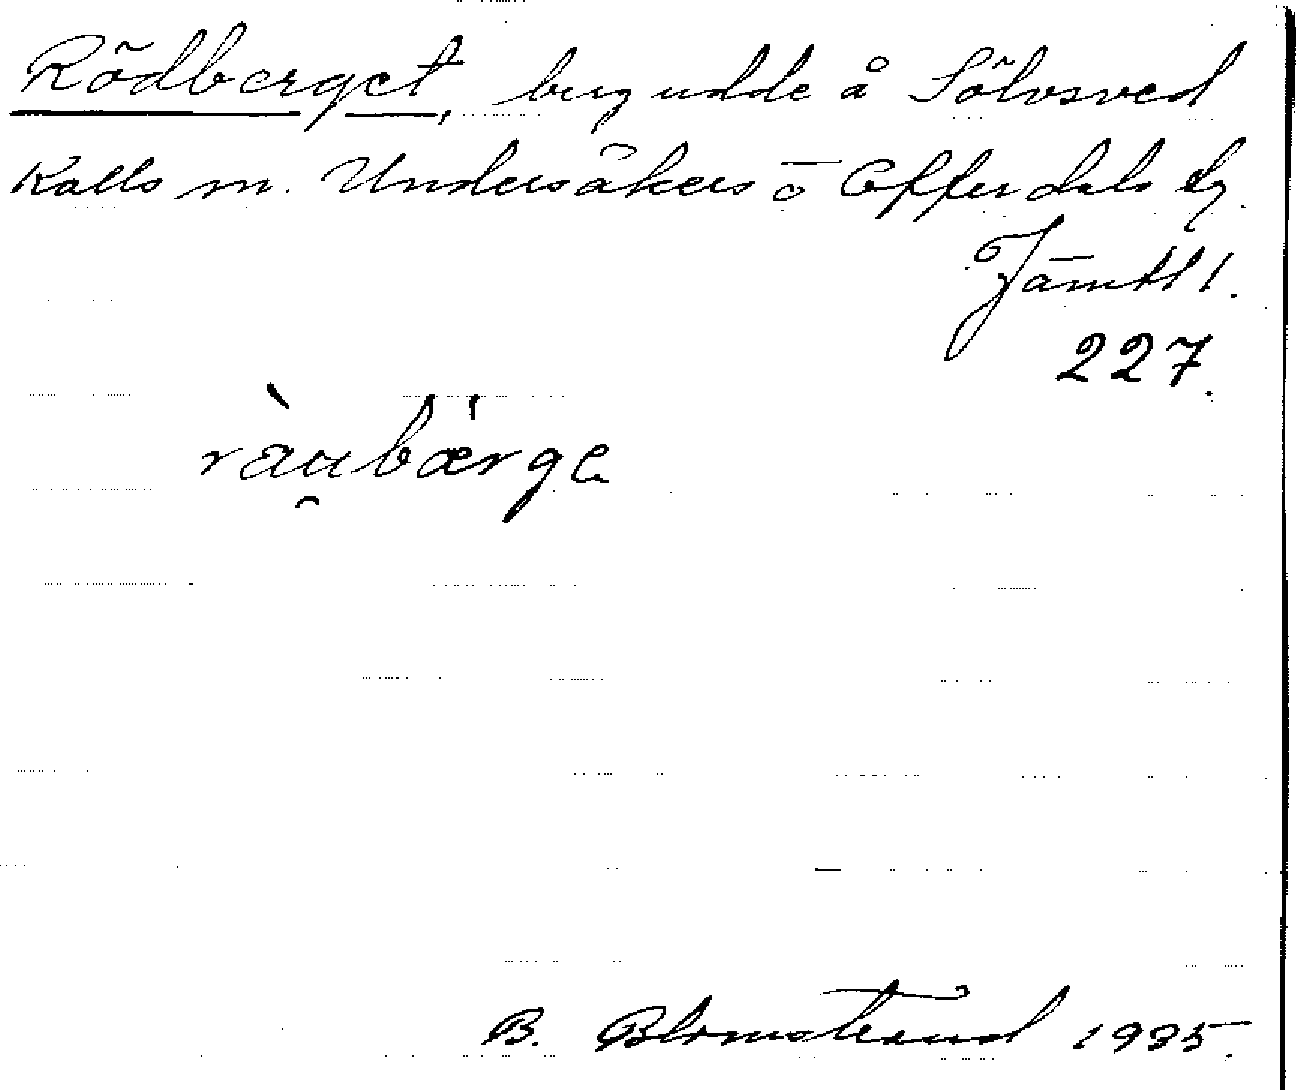 Rödberget, bergudde å Sölvsved
Kalls sn. Undersåkers o Offerdals tg.
Jämtl l.
227.
ràu̯bærge
B. Blomstrand 1935.